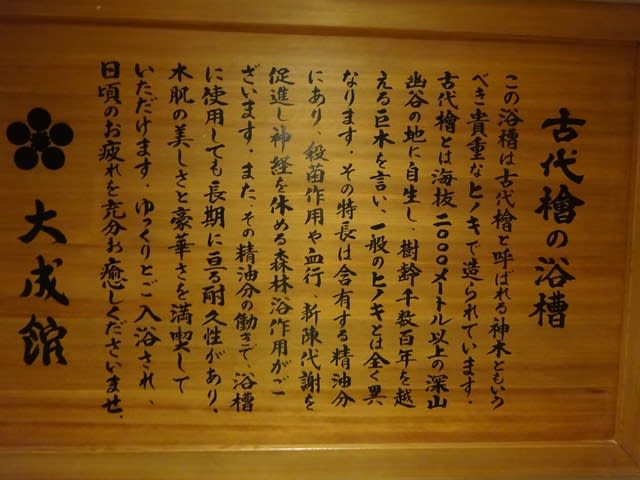 古代檜の浴槽
この浴槽は古代檜と呼ばれる神木ともいう
べき貴重なヒノキで造られています。
古代檜とは海抜二〇〇〇メートル以上の深山
幽谷の地に自生し、樹齢千数百年を越
える巨木を言い、一般のヒノキとは全く異
なります。その特長は含有する精油分
にあり、殺菌作用や血行、新陳代謝を
促進し神経を休める森林浴作用がご
ざいます。また、その精油分の働きで、浴槽
に使用しても長期に亘る耐久性があり、
木肌の美しさと豪華さを満喫して
いただけます。ゆっくりとご入浴され、
日頃のお疲れを充分お癒しくださいませ。
大成館